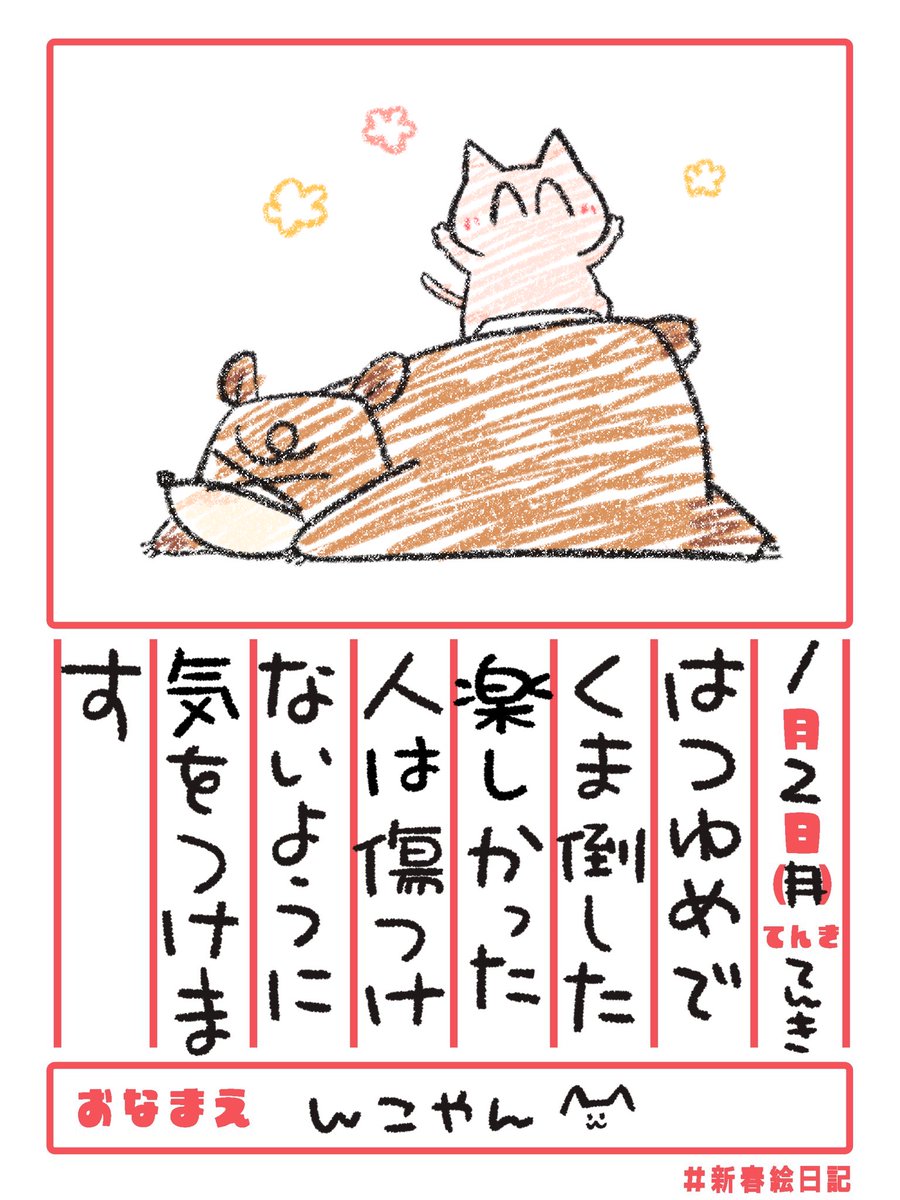 1月2日(井)てんきてんき
はつゆめで
くま倒した
楽しかった
人は傷つけ
ないように
気をつけま
す
おなまえ んこやん
#新春絵日記